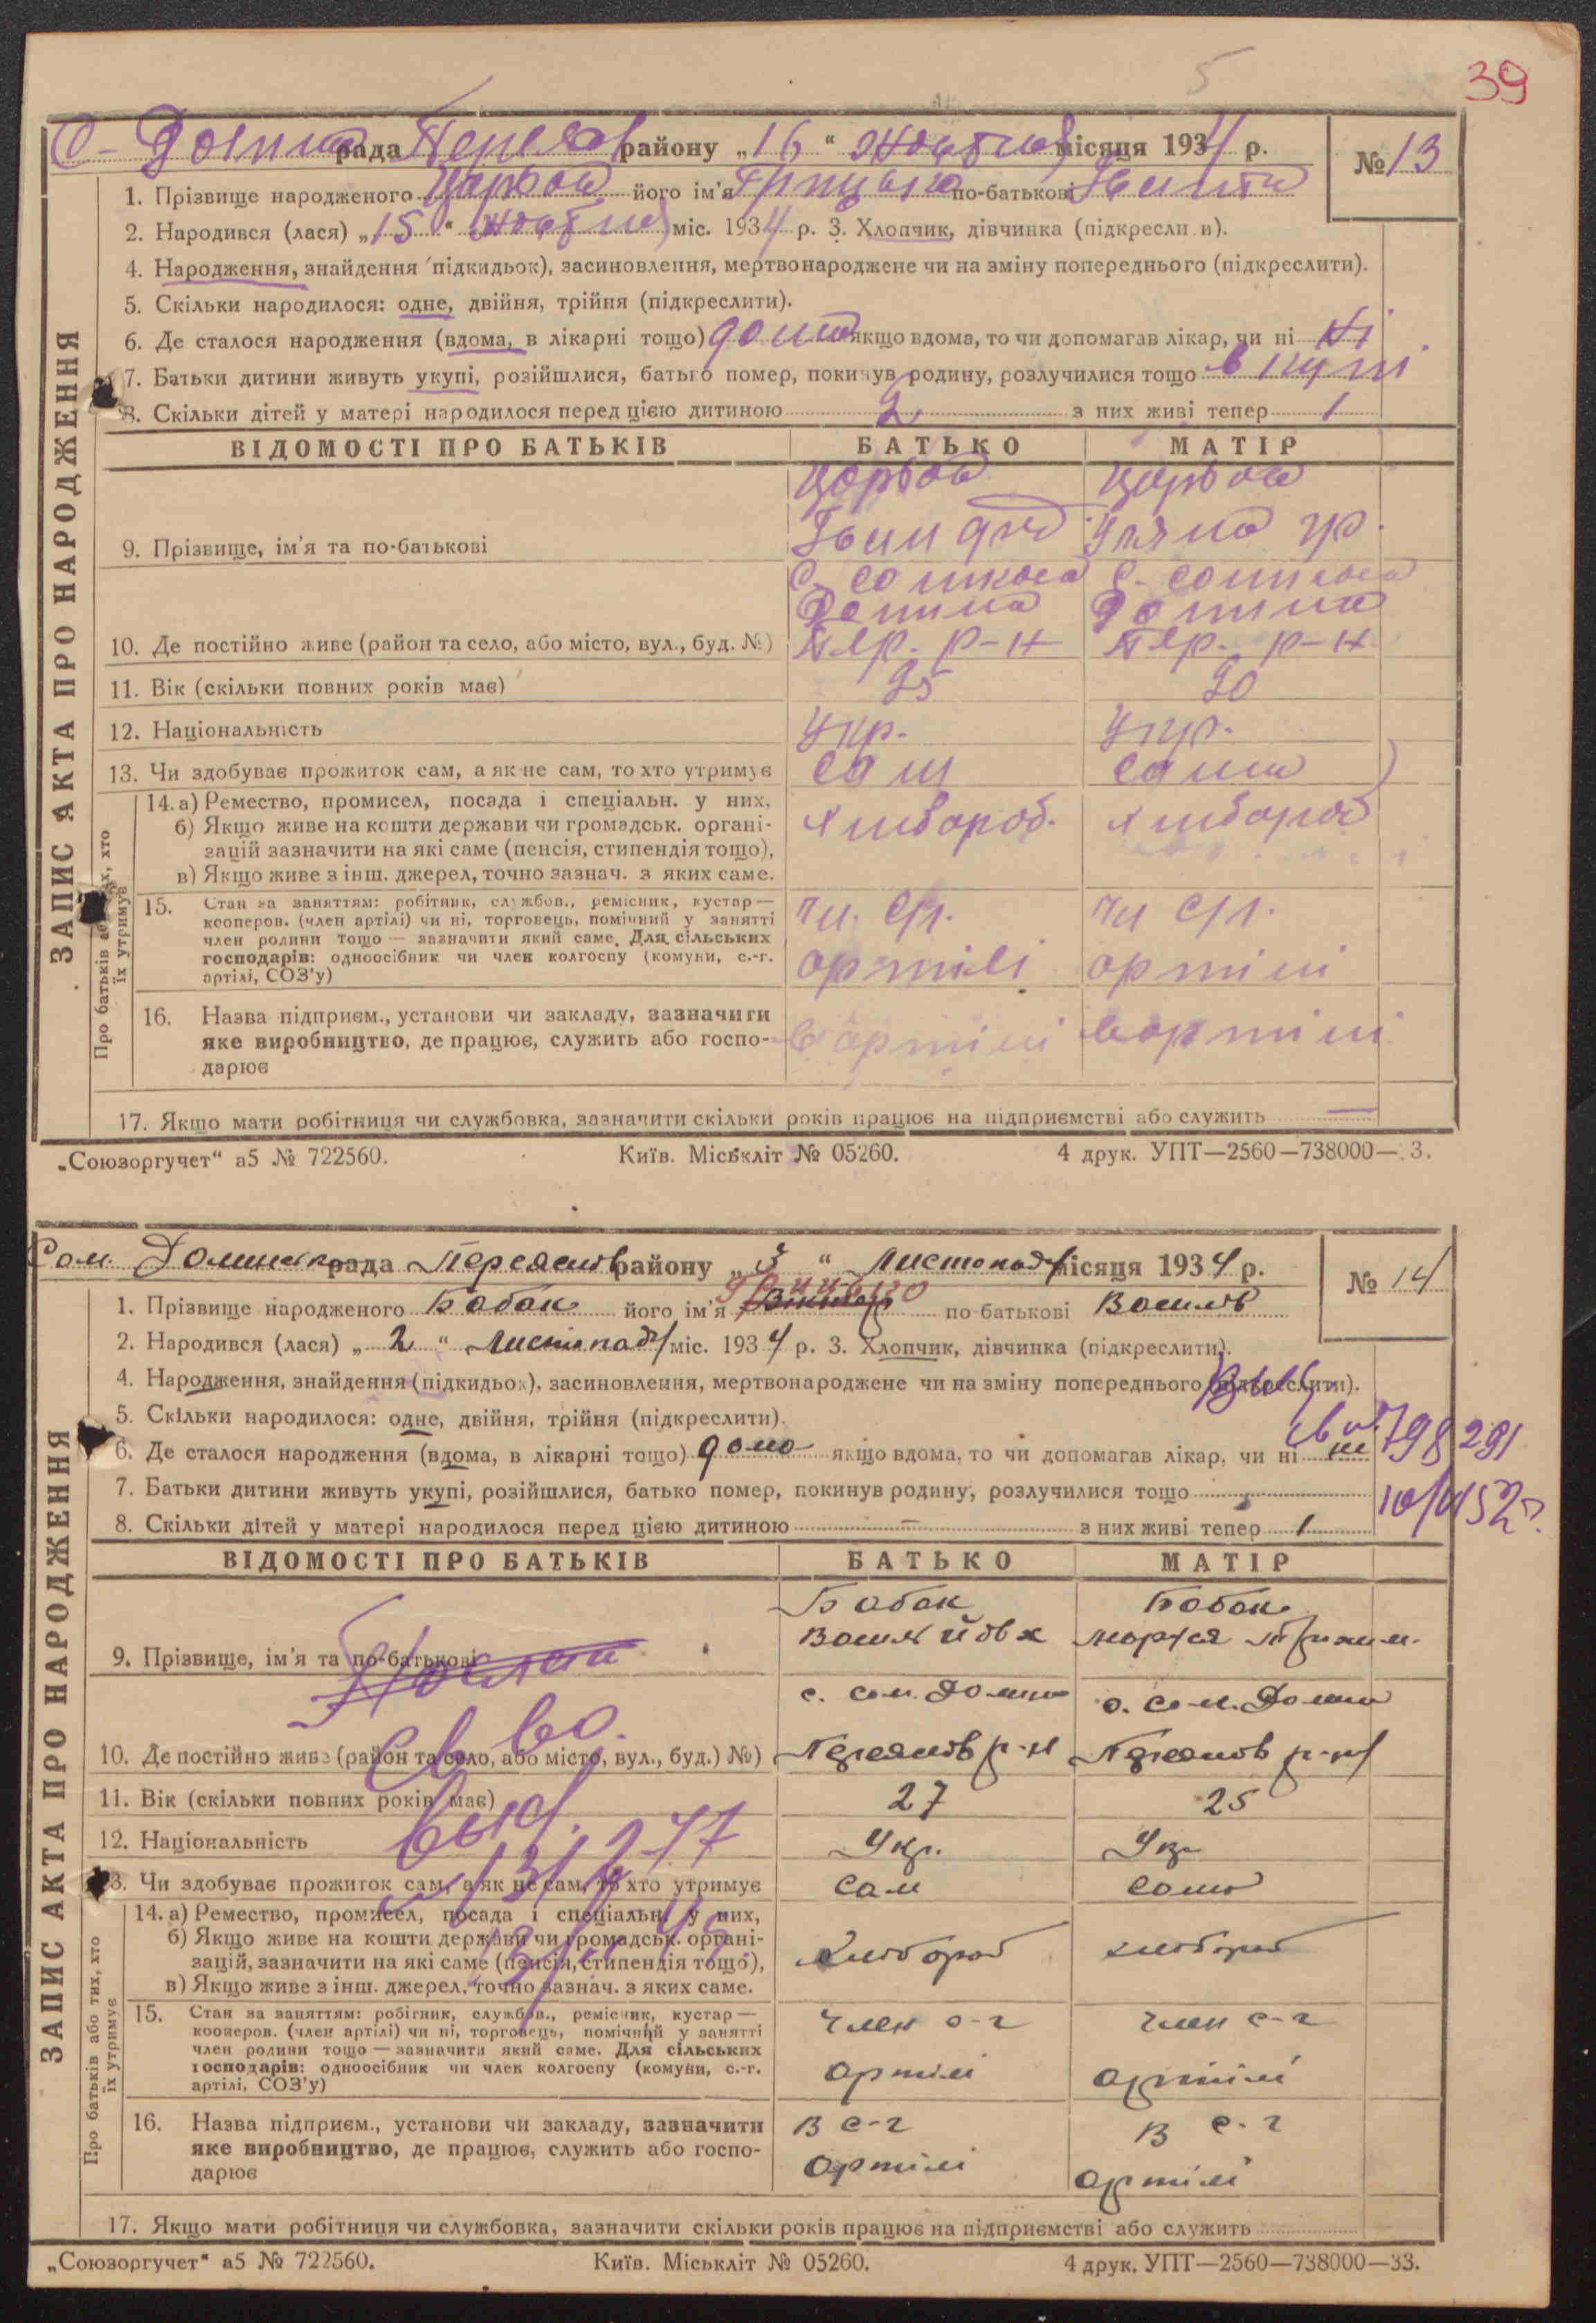 5
39
рада район у „16“ жовтня місяця 1934 р.
№ 13
1. Прізвище народженого його ім'я Грицько по-батькові
2. Народився (лася) „15“ жовтня міс. 1934 р. 3. Хлопчик, дівчинка (підкреслити).
4. Народження, знайдення (підкидьок), засиновлення, мертвонароджене чи на зміну попереднього (підкреслити).
5. Скільки народилося: одне, двійня, трійня (підкреслити).
6. Де сталося народження (вдома, в лікарні тощо) дома якщо вдома, то чи допомагав лікар, чи ні ні
7. Батьки дитини живуть укупі, розійшлися, батько помер, покинув родину, розлучилися тощо вкупі
8. Скільки дітей у матері народилося перед цією дитиною 2 з них живі тепер 1
ВІДОМОСТІ ПРО БАТЬКІВ БАТЬКО МАТІР
9. Прізвище, ім'я та по-батькові Уляна гр.
10. Де постійно живе (район та село, або місто, вул., буд. №) Пер. р-н Пер. р-н
11. Вік (скільки повних років має) 25 20
12. Національність Укр. Укр.
13. Чи здобуває прожиток сам, а як не сам, то хто утримує сам сама
14. а) Ремество, промисел, посада і спеціальн. у них,
б) Якщо живе на кошти держави чи громадськ. органі-
зацій зазначити на які саме (пенсія, стипендія тощо),
в) Якщо живе з інш. джерел, точно зазнач. з яких саме.
хлібороб. хлібороб
15. Стан за заняттям: робітник, службов., ремісник, кустар—
кооперов. (член артілі) чи ні, торговець, помічний у занятті
член родини тощо — зазначити який саме. Для сільських
господарів: одноосібник чи член колгоспу (комуни, с.-г.
артілі, СОЗ'у)
артілі артілі
16. Назва підприєм., установи чи закладу, зазначити
яке виробництво, де працює, служить або госпо-
дарює
в артілі в артілі
17. Якщо мати робітниця чи службовка, зазначити скільки років працює на підприємстві або служить —
ЗАПИС АКТА ПРО НАРОДЖЕННЯ
Про батьків або тих, хто їх утримує
„Союзоргучет“ а5 № 722560. Київ. Міськліт № 05260. 4 друк. УПТ—2560—738000—33.
Сом. Долинська рада Переяслів району „3“ Листопада місяця 1934 р.
№ 14
Грицько
1. Прізвище народженого Бабак його ім'я по-батькові Васильов
2. Народився (лася) „2“ Листопада міс. 1934 р. 3. Хлопчик, дівчинка (підкреслити).
4. Народження, знайдення (підкидьок), засиновлення, мертвонароджене чи на зміну попереднього (підкреслити).
5. Скільки народилося: одне, двійня, трійня (підкреслити).
6. Де сталося народження (вдома, в лікарні тощо) дома якщо вдома, то чи допомагав лікар, чи ні ні
7. Батьки дитини живуть укупі, розійшлися, батько помер, покинув родину, розлучилися тощо
8. Скільки дітей у матері народилося перед цією дитиною — з них живі тепер 1
ВІДОМОСТІ ПРО БАТЬКІВ БАТЬКО МАТІР
9. Прізвище, ім'я та по-батькові
Бабак Бабак
10. Де постійно живе (район та село, або місто, вул., буд.) №)
Переяслів р-н Переяслів р-н
11. Вік (скільки повних років має) 27 25
12. Національність Укр. Укр
13. Чи здобуває прожиток сам, а як не сам, то хто утримує сам сама
14. а) Ремество, промисел, посада і спеціальн. у них,
б) Якщо живе на кошти держави чи громадськ. органі-
зацій, зазначити на які саме (пенсія, стипендія тощо),
в) Якщо живе з інш. джерел, точно зазнач. з яких саме.
хлібороб хлібороб
15. Стан за заняттям: робітник, службов., ремісник, кустар—
кооперов. (член артілі) чи ні, торговець, помічний у занятті
член родини тощо — зазначити який саме. Для сільських
господарів: одноосібник чи член колгоспу (комуни, с.-г.
артілі, СОЗ'у)
член с-г член с-г
артілі артілі
16. Назва підприєм., установи чи закладу, зазначити
яке виробництво, де працює, служить або госпо-
дарює
в с-г в с-г
артілі артілі
17. Якщо мати робітниця чи службовка, зазначити скільки років працює на підприємстві або служить
ЗАПИС АКТА ПРО НАРОДЖЕННЯ
Про батьків або тих, хто їх утримує
„Союзоргучет“ а5 № 722560. Київ. Міськліт № 05260. 4 друк. УПТ—2560—738000—33.